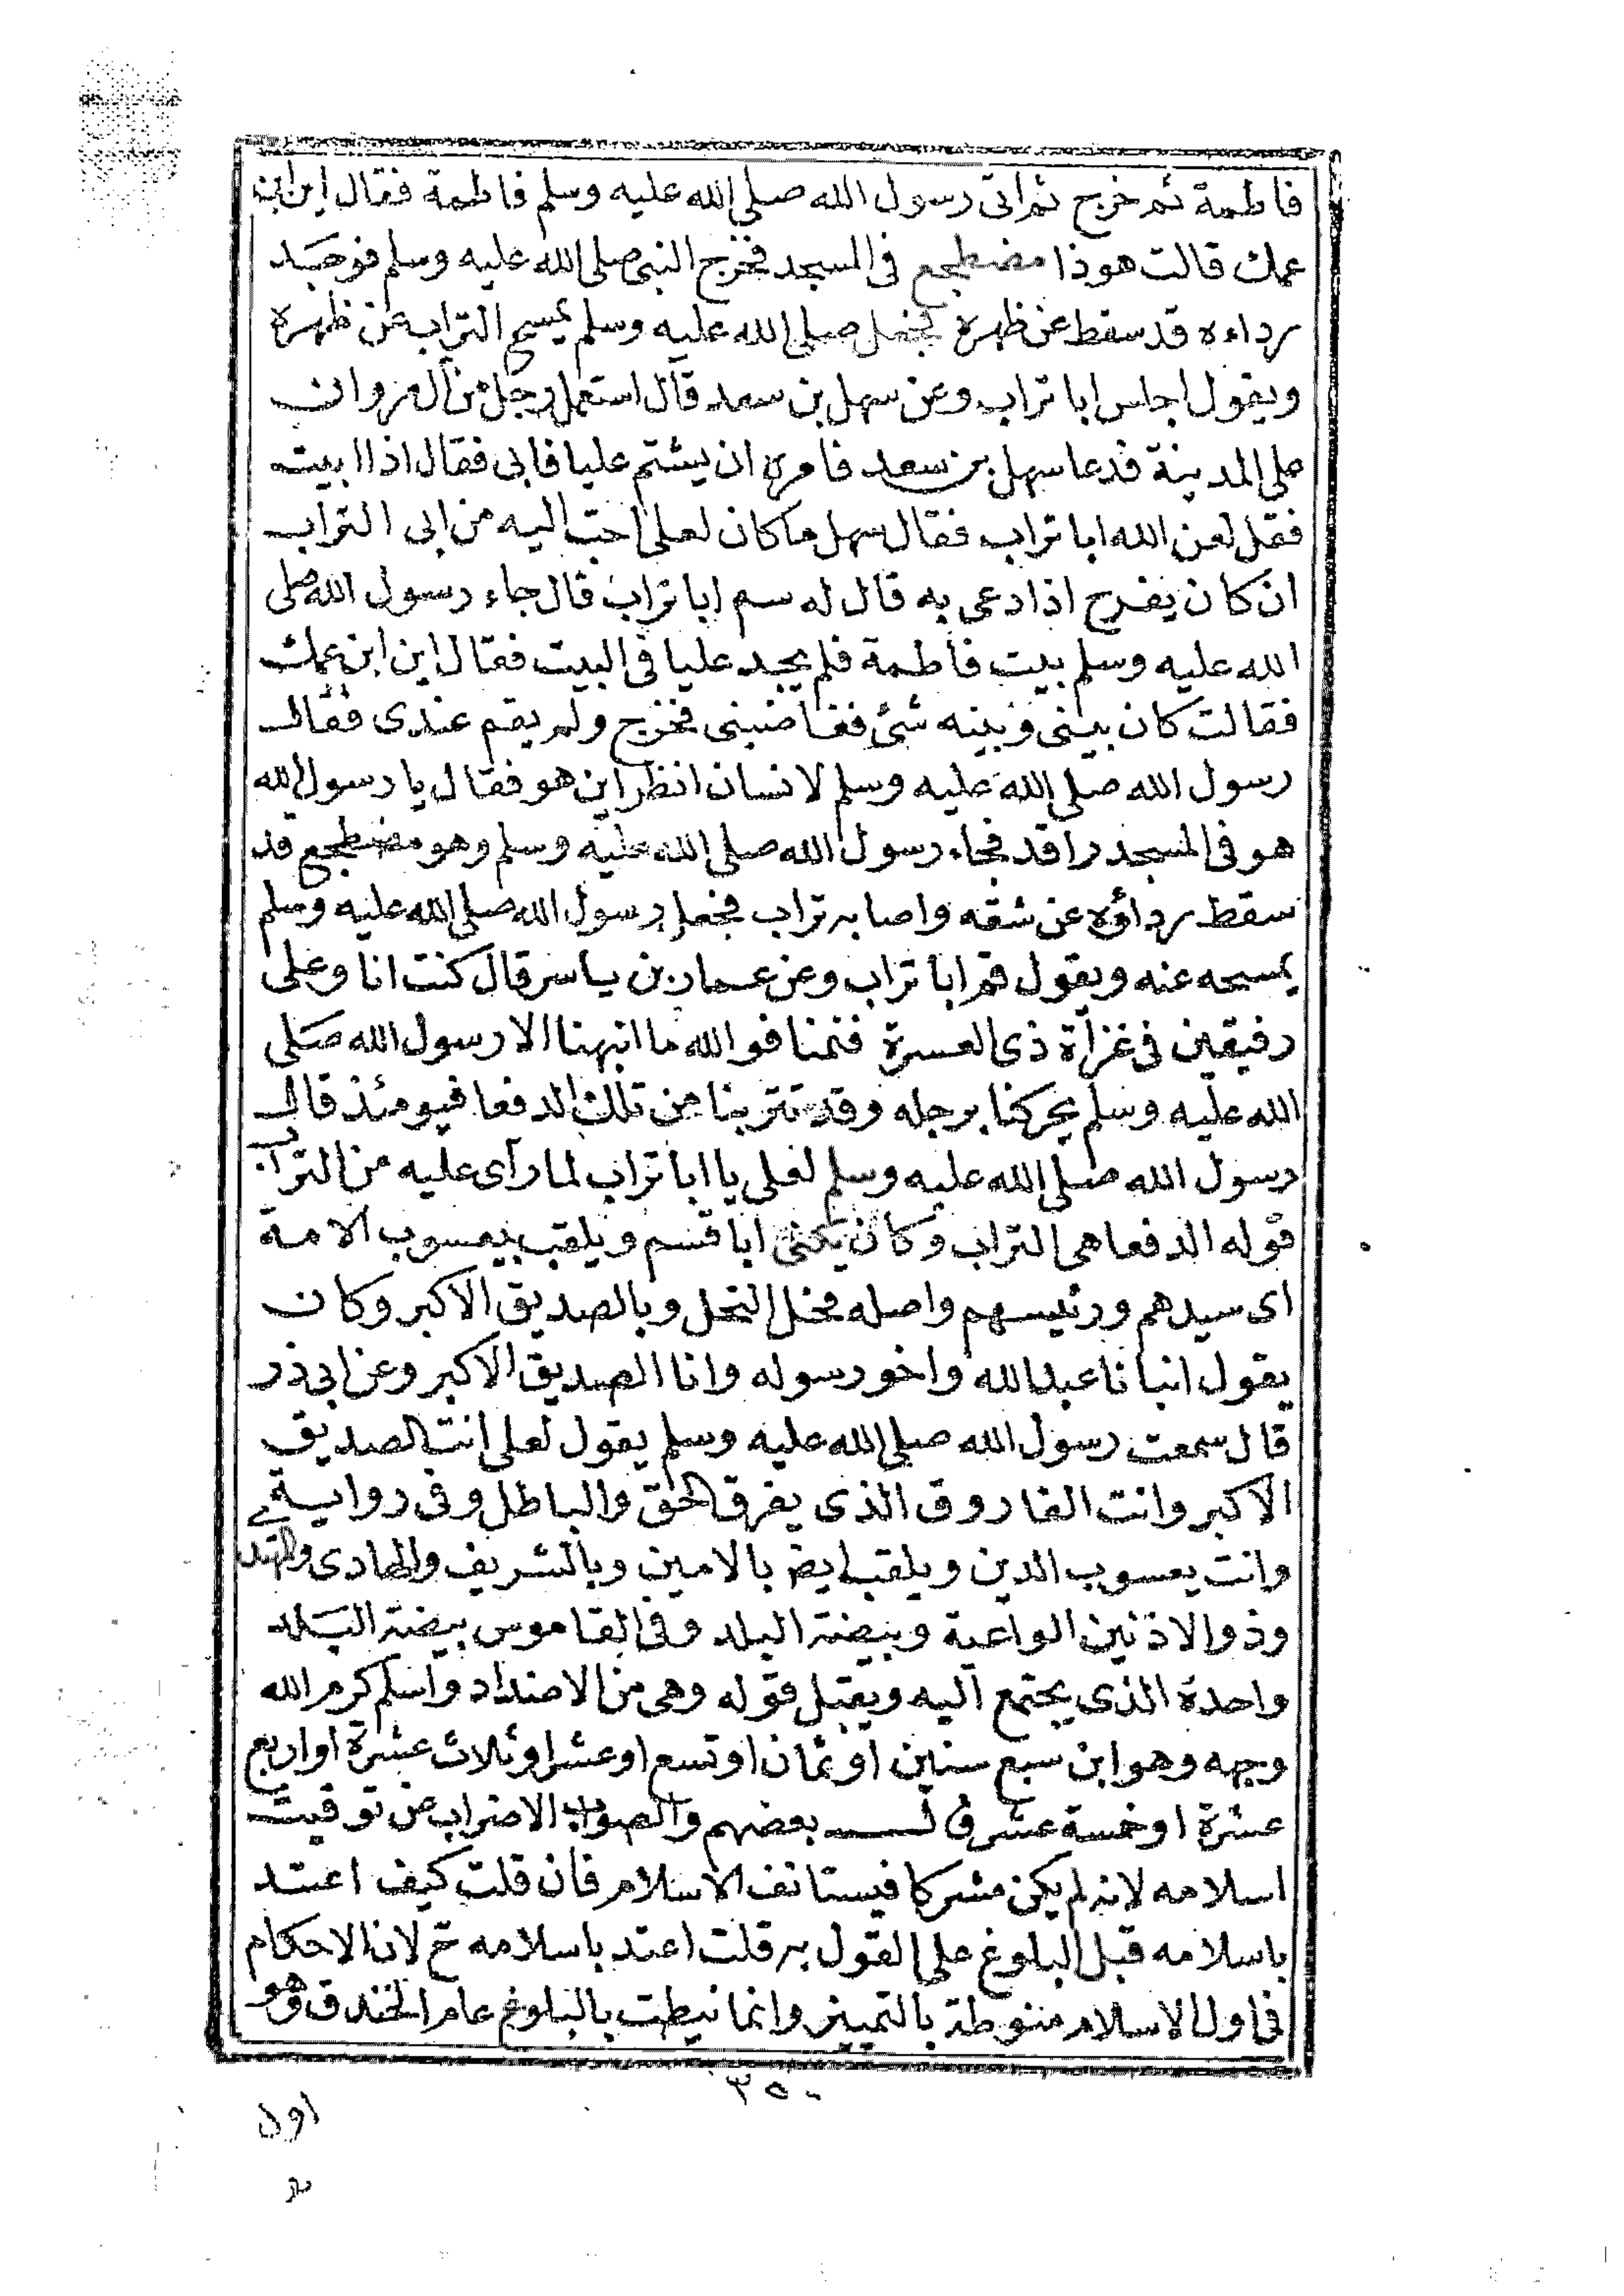 فاطمة ثم خرج ثم اتى رسول الله صلى الله عليه وسلم فاطمة فقال اين ابن
عمك قالت هوذا مضطجع فى المسجد فخرج النبى صلى الله عليه وسلم فوجد
رداءه قد سقط عن ظهره فجعل صلى الله عليه وسلم يمسح التراب عن ظهره
ويقول اجلس ابا تراب وعن سهل بن سعد قال استعمل رجل من آل مروان
على المدينة فدعا سهل بن سعد فامره ان يشتم عليا فابى فقال اذا ابيت
فقل لعن الله ابا تراب فقال سهل ما كان لعلى احب اليه من ابى التراب
ان كان يفرح اذا دعى به قال له سم ابا تراب قال جاء رسول الله صلى
الله عليه وسلم بيت فاطمة فلم يجد عليا فى البيت فقال اين ابن عمك
فقالت كان بينى وبينه شئ فغاضبنى فخرج ولم يقم عندى فقال
رسول الله صلى الله عليه وسلم لانسان انظر اين هو فقال يا رسول الله
هو فى المسجد راقد فجاء رسول الله صلى الله عليه وسلم وهو مضطجع قد
سقط رداؤه عن شقه واصابه تراب فجعل رسول الله صلى الله عليه وسلم
يمسحه عنه ويقول قم ابا تراب وعن عمار بن ياسر قال كنت انا وعلى
رفيقين فى غزاة ذى العسرة فنمنا فوالله ما انبهنا الا رسول الله صلى
الله عليه وسلم يحركنا برجله وقد تتربنا من تلك الدفعا فيومئذ قال
رسول الله صلى الله عليه وسلم لعلى يا ابا تراب لما رآى عليه من التراب
قوله الدفعا هى التراب وكان يكنى ابا قسم ويلقب بيعسوب الامة
اى سيدهم ورئيسهم واصله فحل النحل وبالصديق الاكبر وكان
يقول انبانا عبد الله واخو رسوله وانا الصديق الاكبر وعن ابى ذر
قال سمعت رسول الله صلى الله عليه وسلم يقول لعلى انت الصديق
الاكبر وانت الفاروق الذى يفرق الحق والباطل وفى رواية
وانت يعسوب الدين ويلقب ايض بالامين وبالشريف والهادى
وذو الاذنين الواعية وبيضة البلد وفى القاموس بيضة البلد
واحدة الذى يجتمع اليه ويقبل قوله وهى من الاضداد واسلم كرم الله
وجهه وهو ابن سبع سنين او ثمان او تسع او عشر او ثلاث عشرة او اربع
عشرة او خمسة عشر قال بعضهم والصواب الاضراب عن توقيت
اسلامه لانه لم يكن مشركا فيستانف الاسلام فان قلت كيف اعتد
باسلامه قبل البلوغ على القول به قلت اعتد باسلامه ح لان الاحكام
فى اول الاسلام منوطة بالتمييز وانما نيطت بالبلوغ عام الخندق وهو
٣٥٠
اول